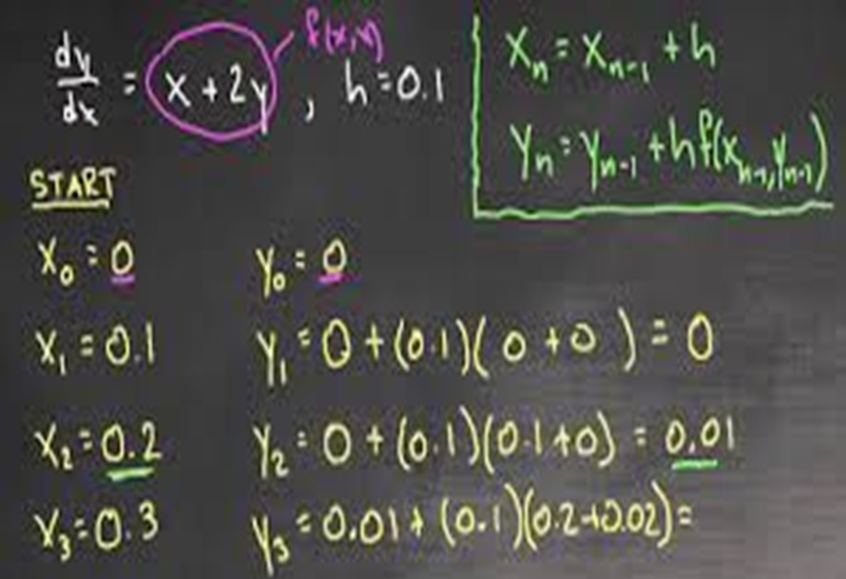 dy/dx = x + 2y, h = 0.1
f(x,y)
Xn = Xn-1 + h
Yn = Yn-1 + hf(xn-1, yn-1)
START
X0 = 0 Y0 = 0
X1 = 0.1 Y1 = 0 + (0.1)(0 + 0) = 0
X2 = 0.2 Y2 = 0 + (0.1)(0.1+0) = 0.01
X3 = 0.3 Y3 = 0.01 + (0.1)(0.2+0.02) =